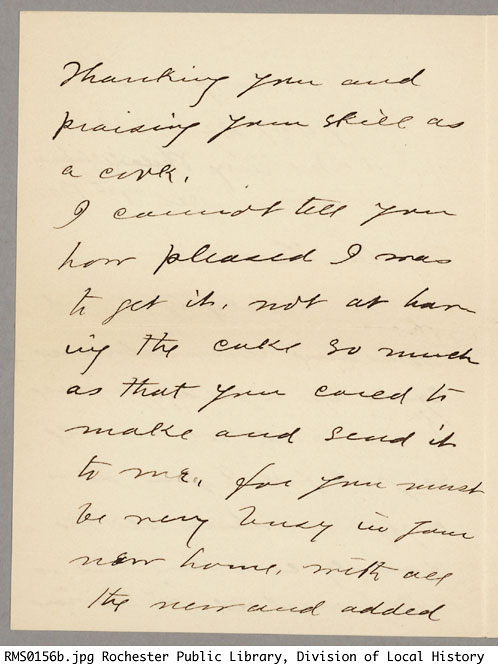 Thanking you and
praising your skill as
a cook.
I cannot tell you
how pleased I was
to get it, not at hav-
ing the cake so much
as that you cared to
make and send it
to me, for you must
be very busy in your
new home, with all
the new and added
RMS0156b.jpg Rochester Public Library, Division of Local History